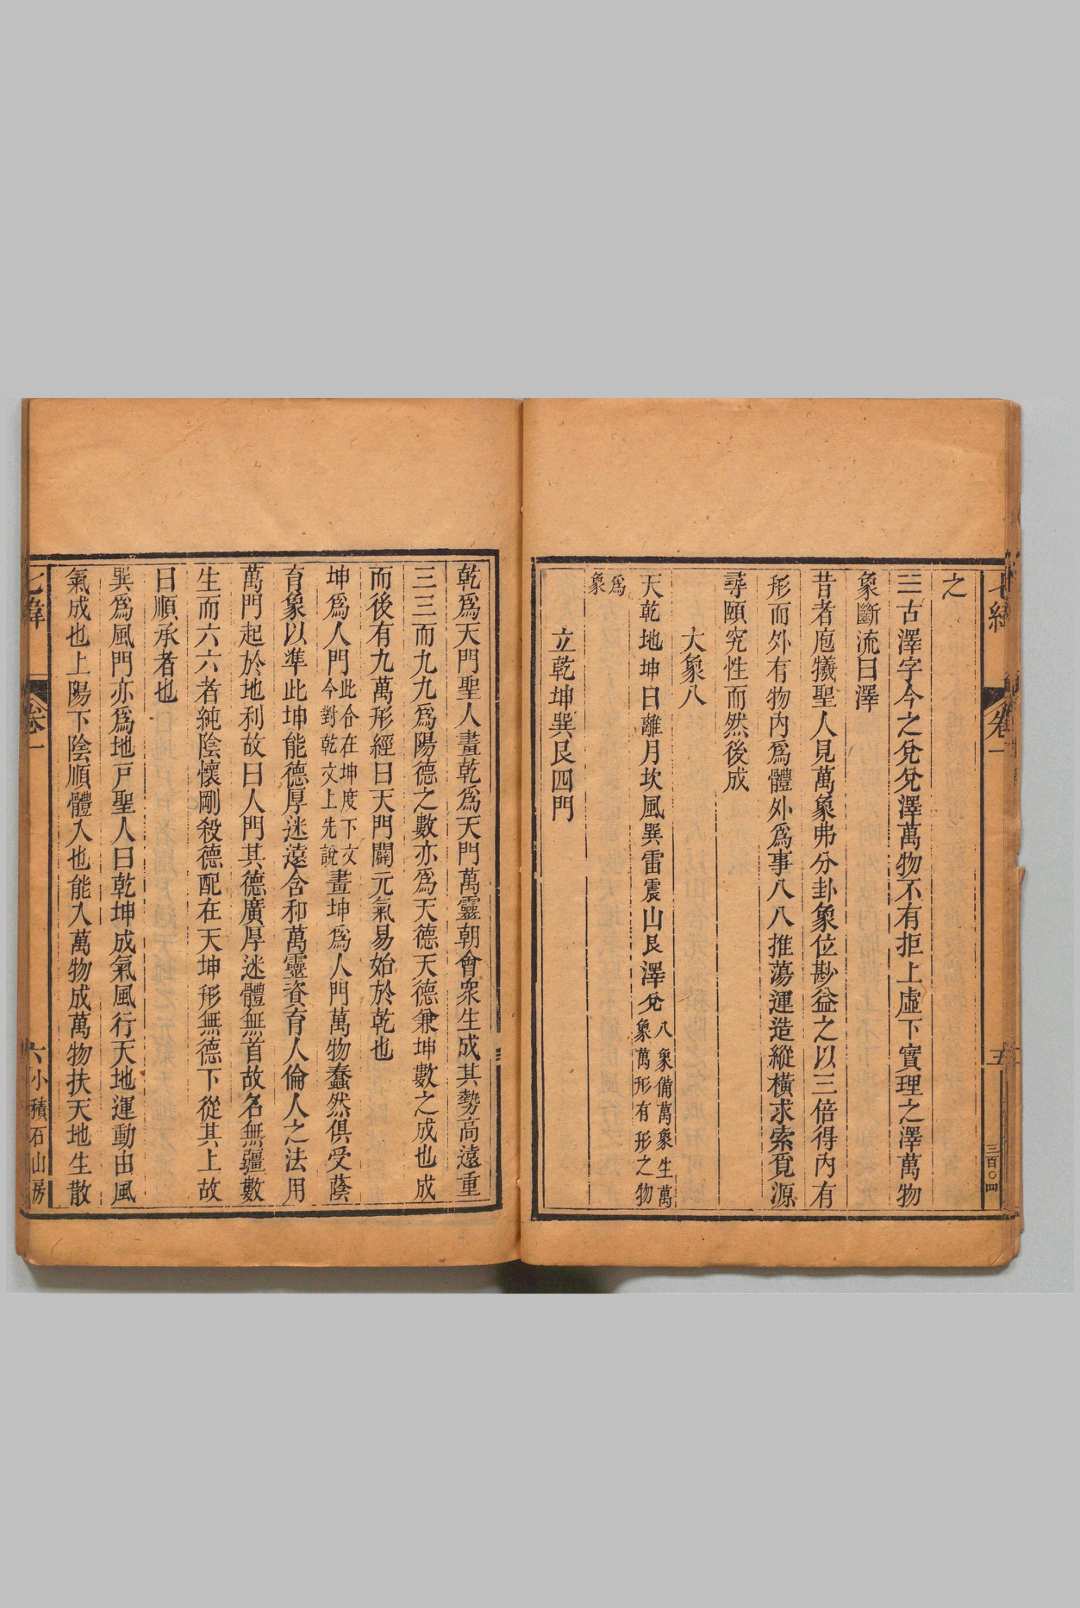 之
☱古澤字今之兌兌澤萬物不有拒上虛下實理之澤萬物
象斷流曰澤
昔者庖犧聖人見萬象弗分卦象位尠益之以三倍得內有
形而外有物內爲體外爲事八八推蕩運造縱橫求索覓源
尋頤究性而然後成
大象八
天乾地坤日離月坎風巽雷震山艮澤兌八象備萬象生萬
象萬形有形之物
爲
象
立乾坤巽艮四門
七緯
卷一
五
三百〇四
乾爲天門聖人畫乾爲天門萬靈朝會衆生成其勢高遠重
三三而九九爲陽德之數亦爲天德天德兼坤數之成也成
而後有九萬形經曰天門闢元氣易始於乾也
坤爲人門此合在坤度下文
今對乾文上先說畫坤爲人門萬物蠢然俱受蔭
育象以準此坤能德厚迷遠含和萬靈資育人倫人之法用
萬門起於地利故曰人門其德廣厚迷體無首故名無疆數
生而六六者純陰懷剛殺德配在天坤形無德下從其上故
曰順承者也
巽爲風門亦爲地戸聖人曰乾坤成氣風行天地運動由風
氣成也上陽下陰順體入也能入萬物成萬物扶天地生散
七緯
卷一
六
小積石山房